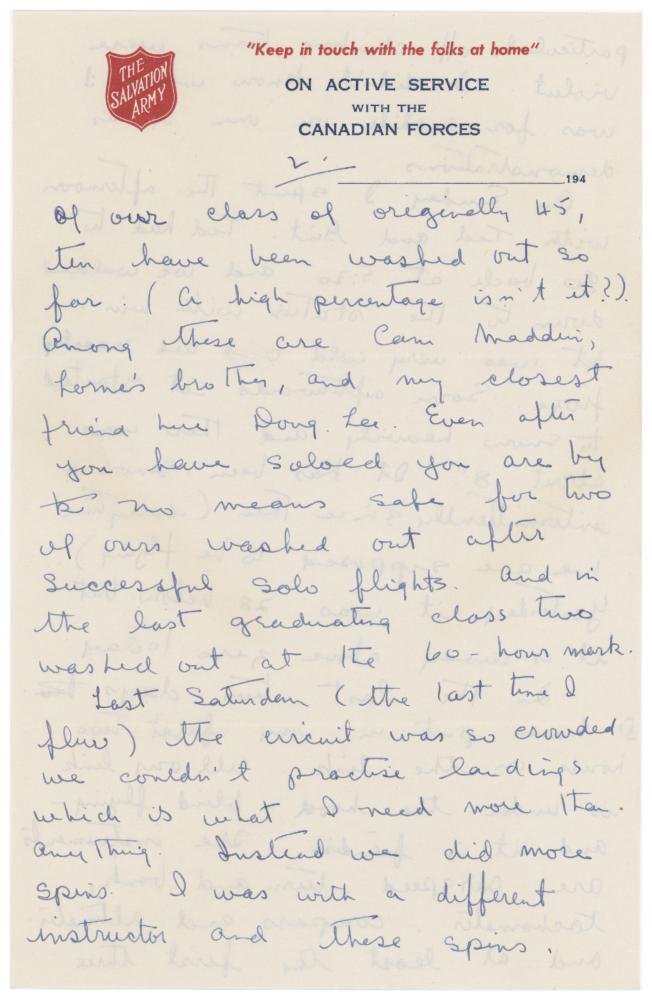 "Keep in touch with the folks at home"
THE
SALVATION
ARMY
ON ACTIVE SERVICE
WITH THE
CANADIAN FORCES
2.
194
Of our class of originally 45,
ten have been washed out so
far. (A high percentage isn't it?).
Among these are Cam Maddin,
Lorne's brother, and my closest
friend here Doug. Lee. Even after
you have soloed you are by
no means safe for two
of ours washed out after
successful solo flights. And in
the last graduating class two
washed out at the 60-hour mark.
Last Saturday (the last time I
flew) the circuit was so crowded
we couldn't practise landings
which is what I need more than
anything. Instead we did more
spins. I was with a different
instructor and these spins.